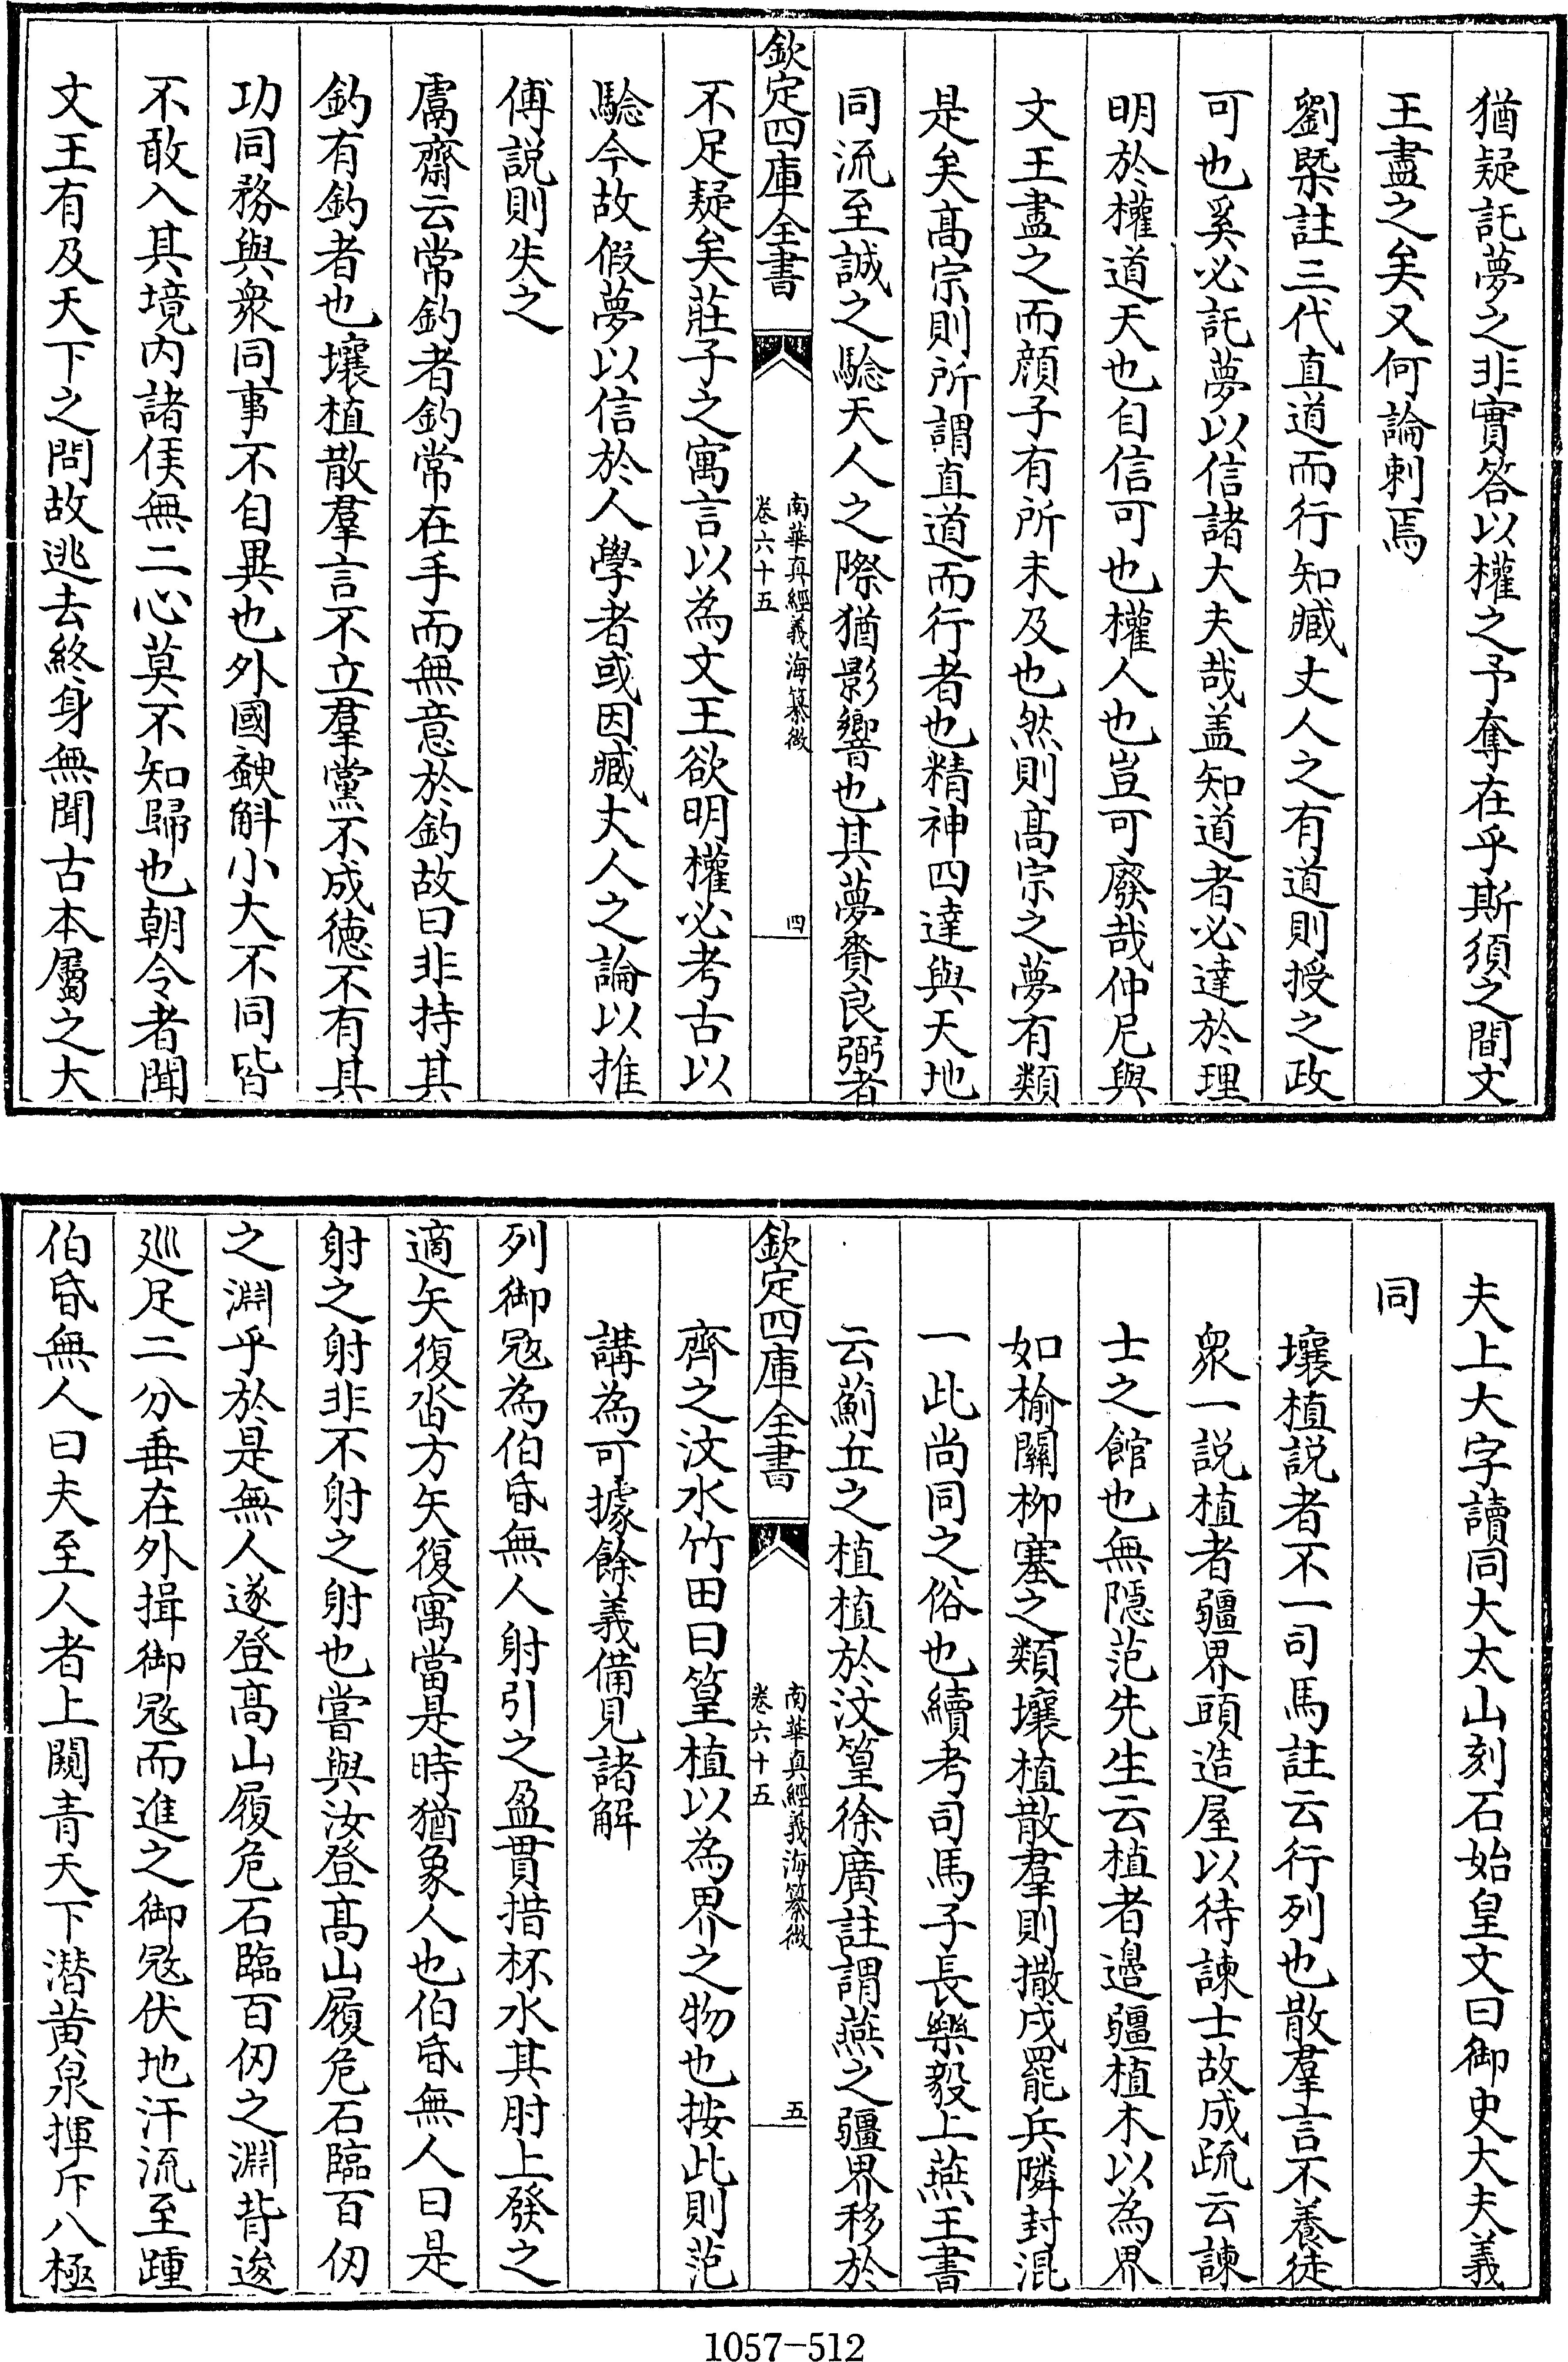 猶疑託夢之非實答以權之予奪在乎斯須之間文
王盡之矣又何論刺焉
劉槩註三代直道而行知臧丈人之有道則授之政
可也奚必託夢以信諸大夫哉盖知道者必達於理
明於權道天也自信可也權人也豈可廢哉仲尼與
文王盡之而顔子有所未及也然則髙宗之夢有類
是矣髙宗則所謂直道而行者也精神四達與天地
同流至誠之騐天人之際猶影響也其夢賚良弼者
欽定四庫全書
南華真經義海纂微
卷六十五
四
不足疑矣莊子之寓言以為文王欲明權必考古以
騐今故假夢以信於人學者或因臧丈人之論以推
傅説則失之
鬳齋云常釣者釣常在手而無意於釣故曰非持其
釣有釣者也壤植散羣言不立羣黨不成徳不有其
功同務與衆同事不自異也外國蚗斛小大不同皆
不敢入其境内諸侯無二心莫不知歸也朝令者聞
文王有及天下之問故逃去終身無聞古本屬之大
夫上大字讀同大太山刻石始皇文曰御史大夫義
同
壤植説者不一司馬註云行列也散羣言不養徒
衆一説植者疆界頭造屋以待諫士故成疏云諫
士之館也無隱范先生云植者邊疆植木以為界
如榆關栁塞之類壤植散羣則撤戍罷兵隣封混
一此尚同之俗也續考司馬子長樂毅上燕王書
云薊丘之植植於汶篁徐廣註謂燕之疆界移於
欽定四庫全書
南華真經義海纂微
卷六十五
五
齊之汶水竹田曰篁植以為界之物也按此則范
講為可據餘義備見諸解
列御冦為伯昏無人射引之盈貫措杯水其肘上發之
適矢復沓方矢復寓當是時猶象人也伯昏無人曰是
射之射非不射之射也嘗與汝登髙山履危石臨百仞
之淵乎於是無人遂登髙山履危石臨百仞之淵背逡
巡足二分垂在外揖御冦而進之御冦伏地汗流至踵
伯昏無人曰夫至人者上闚青天下潛黄泉揮斥八極
1057-512